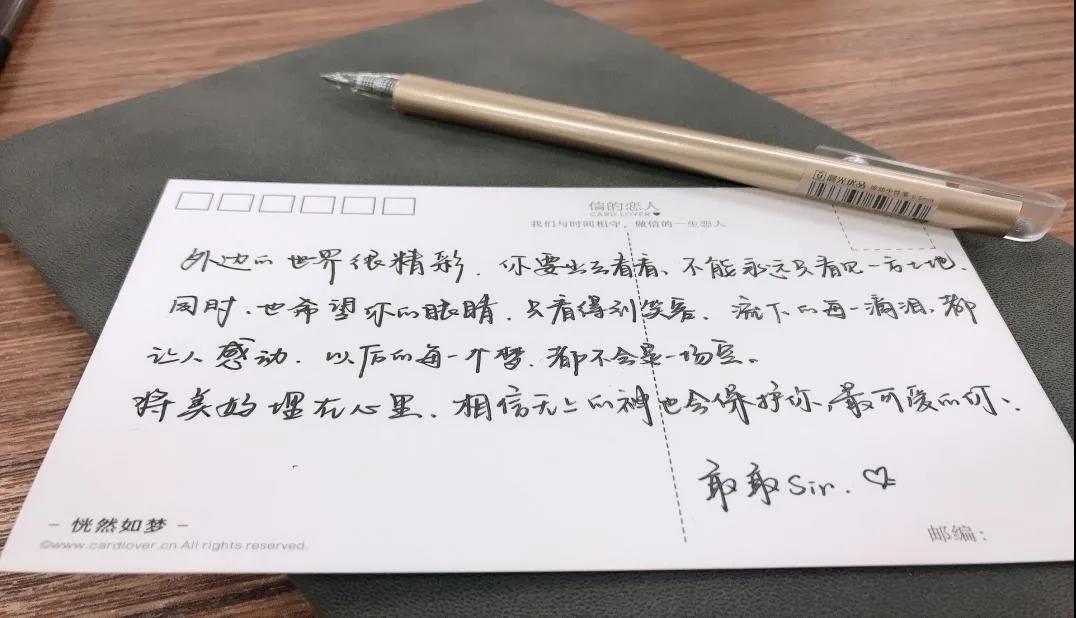 信的恋人
CARD LOVER
我们与时间相守，做信的一生恋人
晨光优品
外边的世界很精彩，你要出去看看、不能永远只看见一方土地．
同时，也希望你的眼睛，只看得到笑容、流下的每一滴泪，都
让人感动．以后的每一个梦，都不会是一场空。
将美好埋在心里、相信天上的神也会保护你，最可爱的你、
敢敢Sir.
- 恍然如梦 -
©www.cardlover.cn All rights reserved.
邮编：